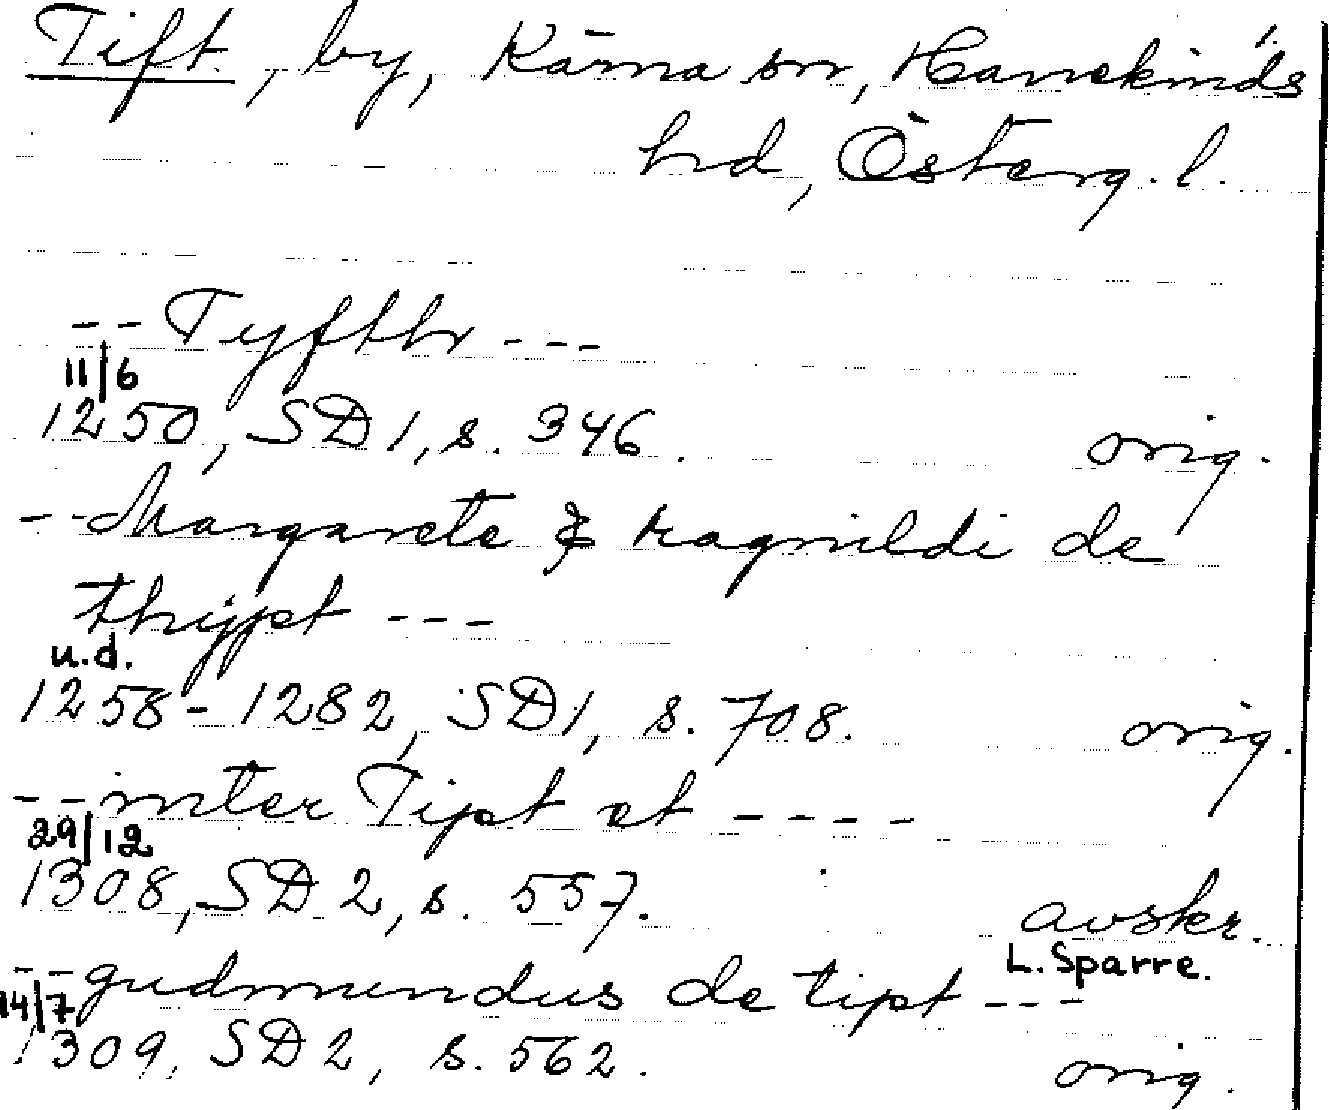 Tift, by, Kärna sn, Hanekinds 1.
hd, Österg. l.
-- Tyfthr ---
11/6
1250, SD 1, s. 346. orig.
-- Margarete & ragnildi de
thijpt ---
u.d.
1258-1282, SD1, s. 708. orig.
-- inter Tipt et ----
29/12
1308, SD 2, s. 557. avskr.
L. Sparre.
-- gudmundus de tipt ---
14/7
1309, SD 2, s. 562. orig.